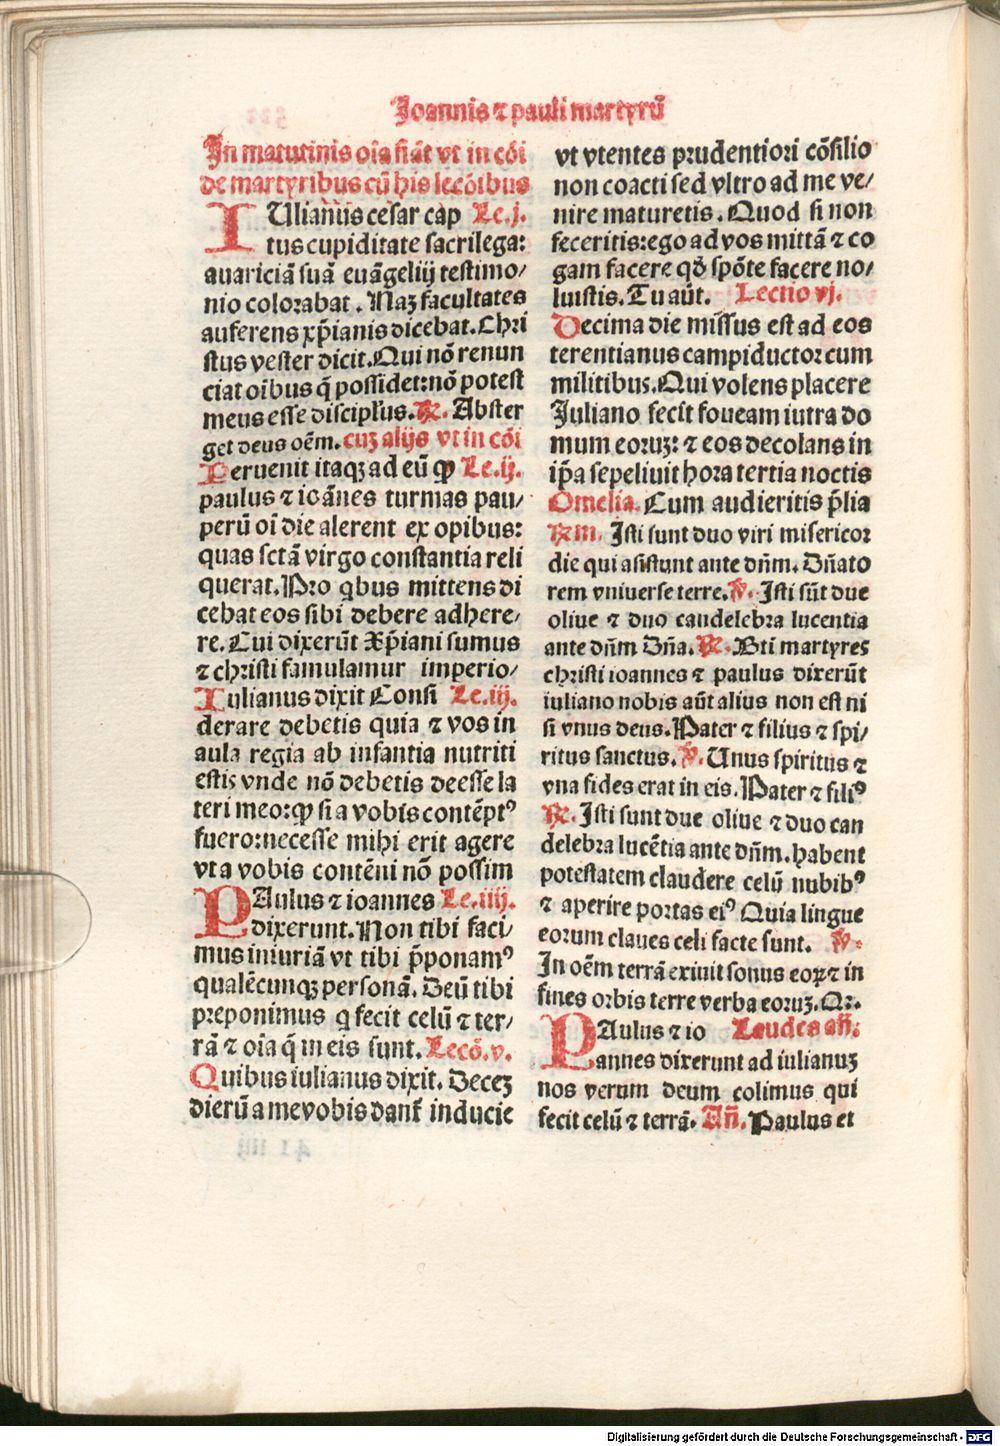 Joannis ⁊ pauli martyrū
In matutinis oīa fiāt vt in cōi
de martyribus cū his lecōibus
IUlianus cesar cap Le.j.
tus cupiditate sacrilega:
auariciā suā euāgelij testimo/
nio colorabat. Naȝ facultates
auferens xp̄ianis dicebat. Chri
stus vester dicit. Qui nō renun
ciat oībus q̄ possidet: nō potest
meus esse discipl'us. ℟. Abster
get deus oēm. cuȝ alijs vt in cōi
Peruenit itaqȝ ad eū ꝙ Le.ij.
paulus ⁊ ioānes turmas pau/
perū oī die alerent ex opibus:
quas sctā virgo constantia reli
querat. Pro qbus mittens di
cebat eos sibi debere adhere/
re. Cui dixerūt Xp̄iani sumus
⁊ christi famulamur imperio/
Iulianus dixit Consi Le.iij.
derare debetis quia ⁊ vos in
aula regia ab infantia nutriti
estis vnde nō debetis deesse la
teri meo: ꝙ si a vobis contēptꝰ
fuero: necesse mihi erit agere
vt a vobis contēni nō possim
PAulus ⁊ ioannes Le.iiij.
dixerunt. Non tibi faci/
mus iniuriā vt tibi p̄ponamꝰ
qualēcunqȝ personā. Deū tibi
preponimus q fecit celū ⁊ ter/
rā ⁊ oīa q̄ in eis sunt. Lecō.v.
Quibus iulianus dixit. Deceȝ
dierū a me vobis dant' inducie
vt vtentes prudentiori cōsilio
non coacti sed vltro ad me ve/
nire maturetis. Quod si non
feceritis: ego ad vos mittā ⁊ co
gam facere qđ spōte facere no/
luistis. Tu aūt. Lectio vj.
Decima die missus est ad eos
terentianus campiductor cum
militibus. Qui volens placere
Juliano fecit foueam iutra do
mum eoruȝ: ⁊ eos decolans in
ip̄a sepeliuit hora tertia noctis
Omelia. Cum audieritis p̄lia
℟ iij. Isti sunt duo viri misericor
die qui asistunt ante dn̄m. Dn̄ato
rem vniuerse terre. ℣. Isti sūt due
oliue ⁊ duo candelebra lucentia
ante dn̄m Dn̄a. ℟. Bti martyres
christi ioannes ⁊ paulus dixerūt
iuliano nobis aūt alius non est ni
si vnus deus. Pater ⁊ filius ⁊ spi/
ritus sanctus. ℣. Unus spiritus ⁊
vna fides erat in eis. Pater ⁊ filiꝰ
℟. Isti sunt due oliue ⁊ duo can
delebra lucētia ante dn̄m. habent
potestatem claudere celū nubibꝰ
⁊ aperire portas eiꝰ Quia lingue
eorum claues celi facte sunt. ℣.
In oēm terrā exiuit sonus eoꝝ ⁊ in
fines orbis terre verba eoruȝ. Or.
PAulus ⁊ io Laudes an̄.
annes dixerunt ad iulianuȝ
nos verum deum colimus qui
fecit celū ⁊ terrā. An̄. Paulus et
Digitalisierung gefördert durch die Deutsche Forschungsgemeinschaft - DFG